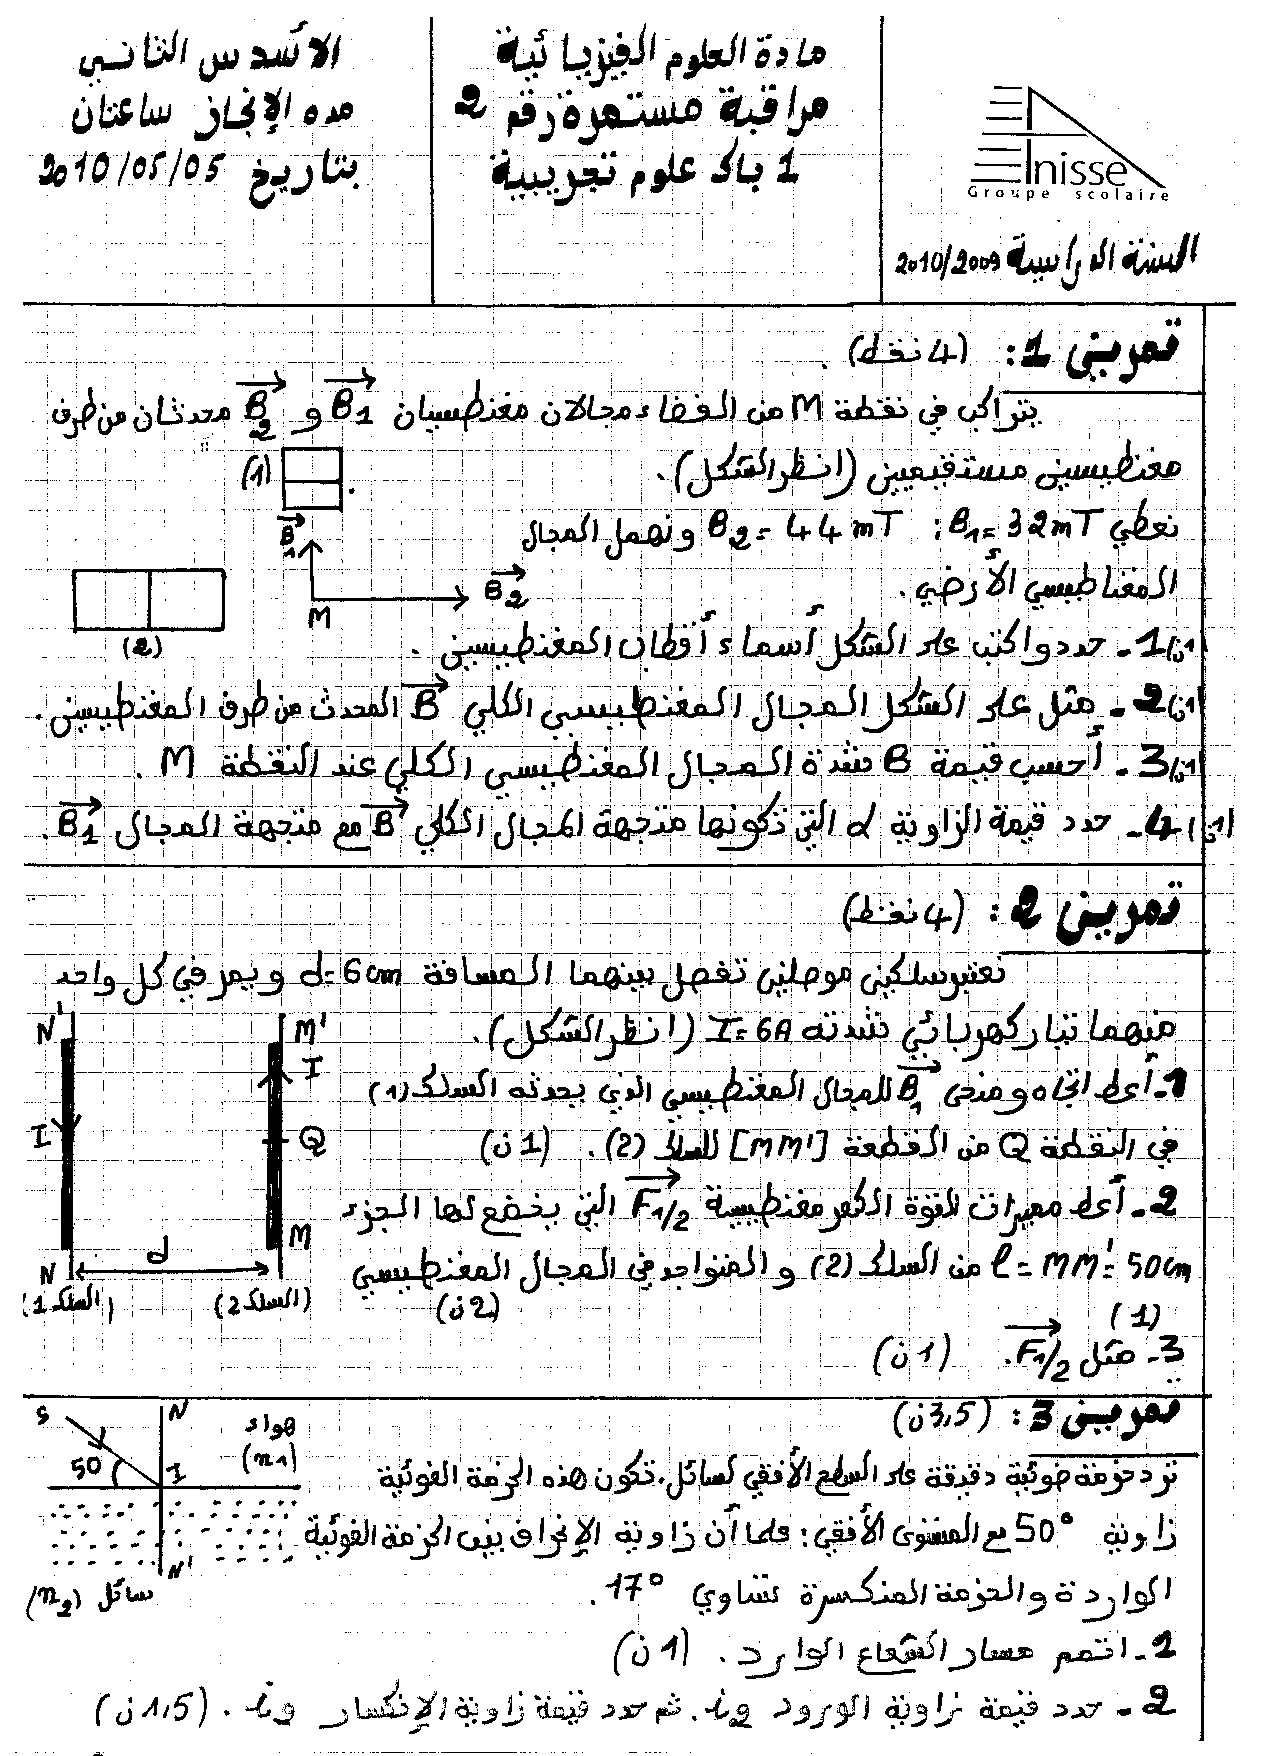 مادة العلوم الفيزيائية
مراقبة مستمرة رقم 2
1 باك علوم تجريبية
الأسدس الثاني
مده الإنجاز ساعتان
بتاريخ 2010/05/05
Inisse
Groupe scolaire
السنة الدراسية 2010/2009
تمرين 1: (4 نقط).
يتراكب في نقطة M من الفضاء مجالان مغنطيسيان B1 و B2 محدثان من طرف
مغنطيسين مستقيميين (انظر الشكل).
نعطي B1=32mT ; B2=44mT ونهمل المجال
المغناطيسي الأرضي.
(1)
B1
B2
M
(2)
(1ن) 1- حدد واكتب على الشكل أسماء أقطاب المغنطيسين.
(1ن) 2- مثل على الشكل المجال المغنطيسي الكلي B المحدث من طرف المغنطيسين.
(1ن) 3- أحسب قيمة B شدة المجال المغنطيسي الكلي عند النقطة M.
(1ن) 4- حدد قيمة الزاوية α التي تكونها متجهة المجال الكلي B مع متجهة المجال B1.
تمرين 2: (4 نقط)
نعتبر سلكين موصلين تفصل بينهما المسافة d=6cm ويمر في كل واحد
منهما تيار كهربائي شدته I=6A (انظر الشكل).
1- أعط اتجاه ومنحى B1 للمجال المغنطيسي الذي يحدثه السلك (1)
في النقطة Q من القطعة [MM'] للسلك (2). (1ن)
2- أعط مميزات القوة الكهرمغنطيسية F1/2 التي يخضع لها الجزء
l=MM'=50cm من السلك (2) والمتواجد في المجال المغنطيسي
(1) (2ن)
3- مثل F1/2. (1ن)
N'
M'
I
I
Q
M
d
N
(السلك 1)
(السلك 2)
تمرين 3: (3,5ن)
ترد حزمة ضوئية دقيقة على السطح الأفقي لسائل. تكون هذه الحزمة الضوئية
زاوية 50° مع المستوى الأفقي؛ علما أن زاوية الإنحراف بين الحزمة الضوئية
الواردة والحزمة المنكسرة تساوي 17°.
1- اتمم مسار الشعاع الوارد. (1ن)
2- حدد قيمة زاوية الورود i1. ثم حدد قيمة زاوية الإنكسار i2. (1,5ن)
S
N
هواء
(n1)
50
I
N'
سائل (n2)